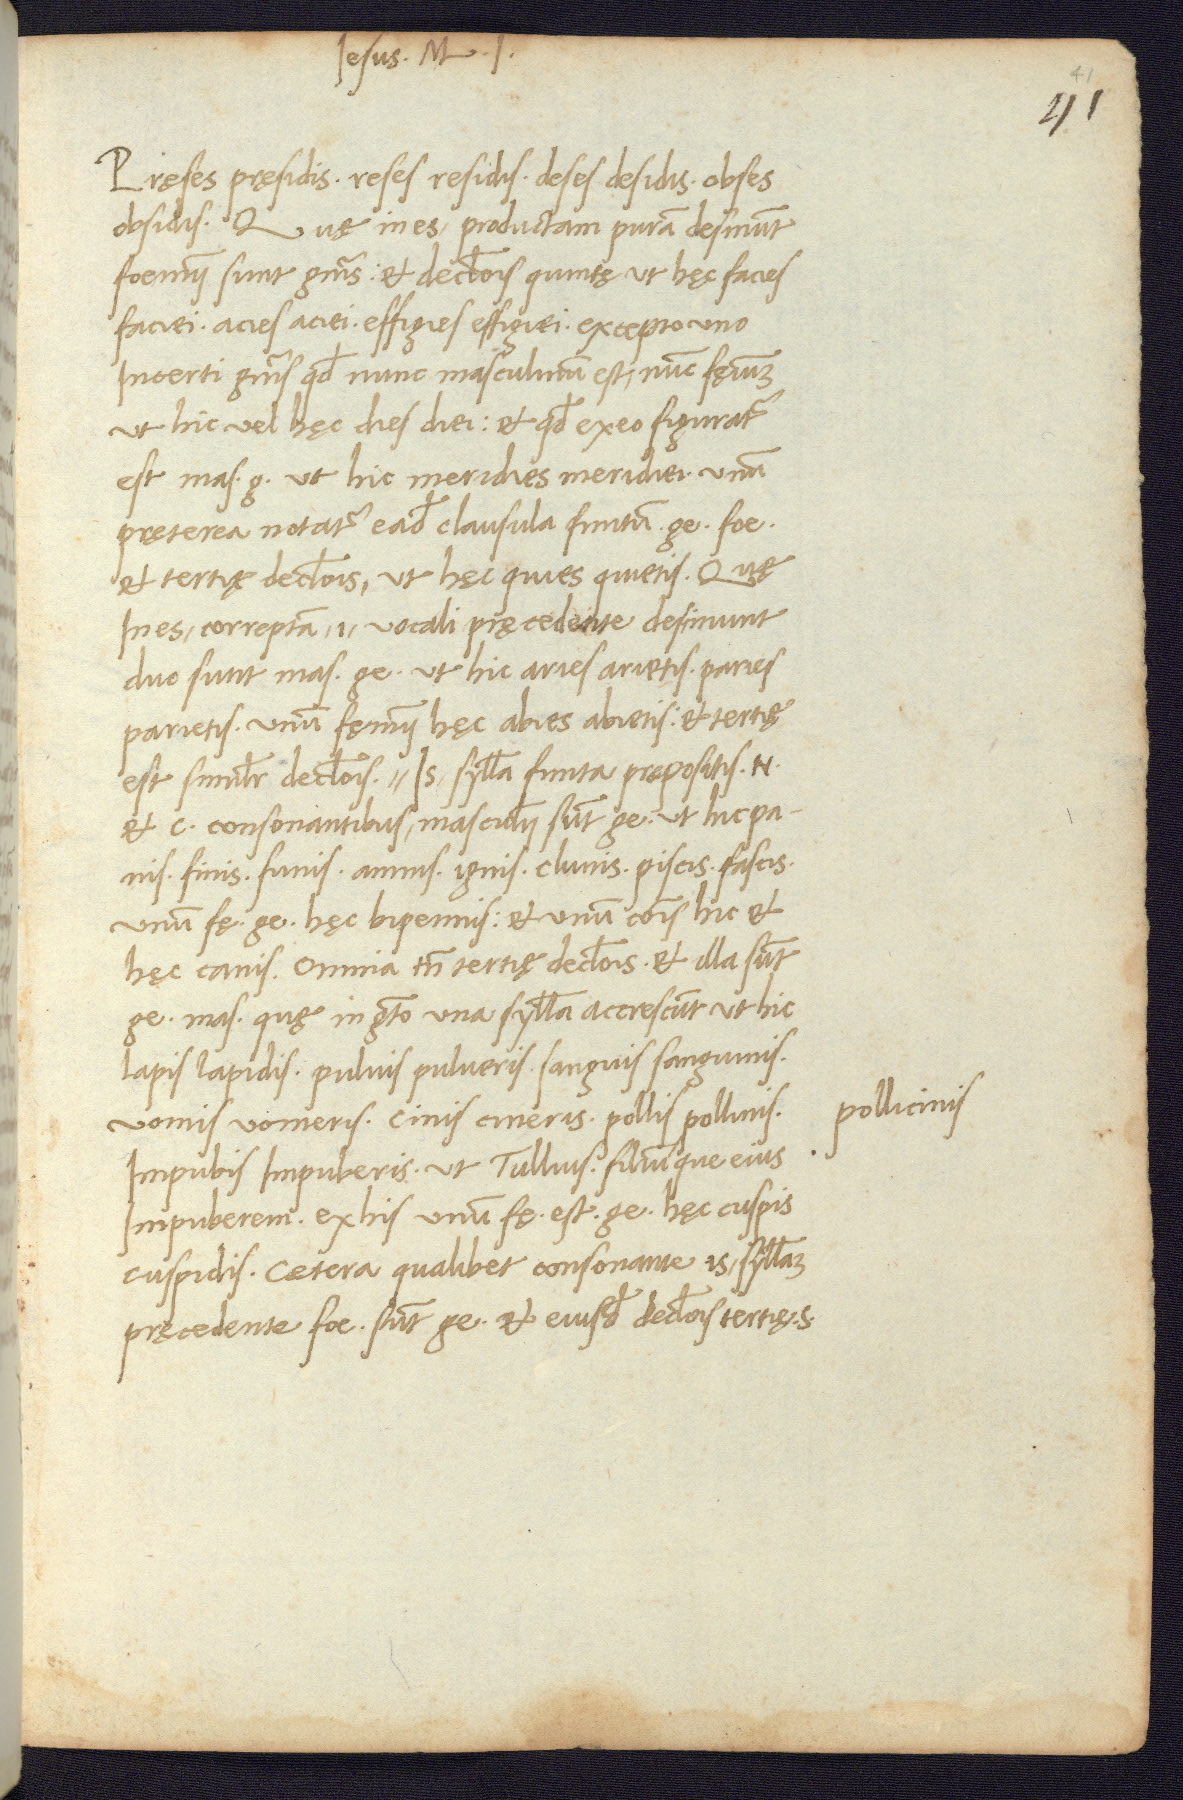 Jesus. M. J.
41
41
Pręses pręsidis. reses residis. deses desidis. obses
obsidis. Quę in es, productam purā desinūt
foeminī sunt gn̄ris: et decl̄ois quintę ut hęc facies
faciei. acies aciei. effigies effigiei. excepto uno
Incerti gn̄ris qd̄ nunc masculinū est, nūc fęmiꝫ
ut hic vel hęc dies diei: et qd̄ ex eo figurat̄
est mas. g. ut hic meridies meridiei. unū
pręterea notat̄ ead̄ clausula finitū. ge. foe.
et tertię decl̄ois, ut hęc quies quietis. Quę
In es, correptā, i, vocali pręcedente desinunt
duo sunt mas. ge. ut hic aries arietis. paries
parietis. unū fęminī hęc abies abietis: et tertię
est simil̄r decl̄ois. Is, syll̄a finita prępositis. N.
et c. consonantibus, masculinī sūt ge. ut hic pa-
nis. finis. funis. amnis. ignis. clunis. piscis. fascis.
unū fę. ge. hęc bipennis: et unū cōis hic et
hęc canis. Omnia tn̄ tertię decl̄ois. et illa sūt
ge. mas. quę in gt̄o una syll̄a accrescūt ut hic
lapis lapidis. pulvis pulveris. sanguis sanguinis.
vomis vomeris. cinis cineris. pollis pollinis.
pollicinis
Impubis Impuberis. ut Tullius. filiūque eius
Impuberem. ex his unū fę. est. ge. hęc cuspis
cuspidis. Cætera qualibet consonante is, syll̄aꝫ
pręcedente foe. sūt ge. et eiusd̄ decl̄ois tertię. s.